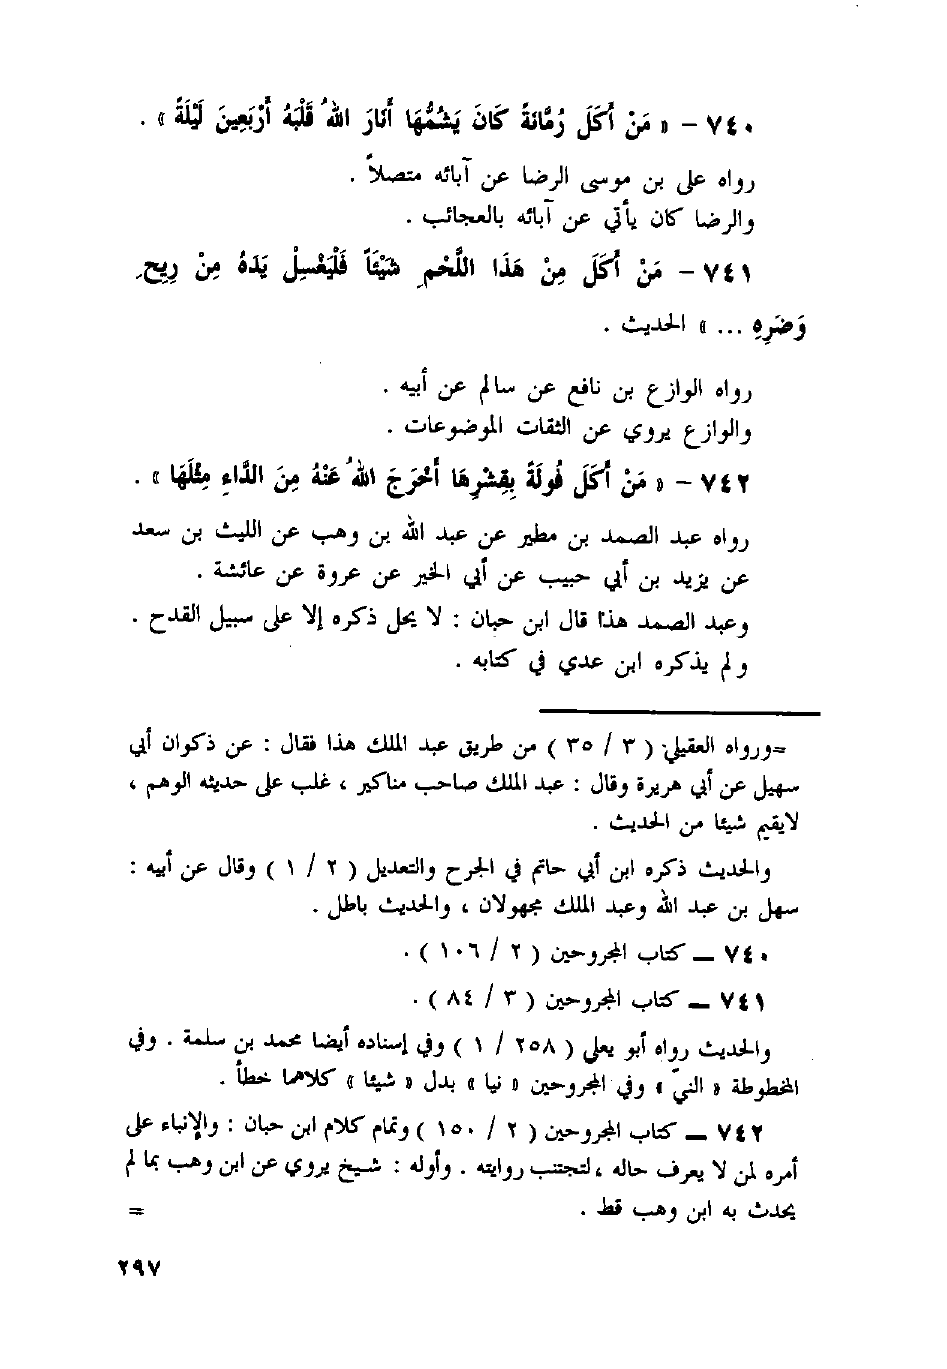 ٧٤٠ – « مَنْ أَكَلَ رُمَّانَةً كَانَ يَشُمُّهَا أَنَارَ اللهُ قَلْبَهُ أَرْبَعِينَ لَيْلَةً » .
رواه علي بن موسى الرضا عن آبائه متصلاً .
والرضا كان يأتي عن آبائه بالعجائب .
٧٤١ – مَنْ أَكَلَ مِنْ هَذَا اللَّحْمِ شَيْئاً فَلْيَغْسِلْ يَدَهُ مِنْ رِيحِ
وَضَرِهِ ... » الحديث .
رواه الوازع بن نافع عن سالم عن أبيه .
والوازع يروي عن الثقات الموضوعات .
٧٤٢ – « مَنْ أَكَلَ فُولَةً بِقِشْرِهَا أَخْرَجَ اللهُ عَنْهُ مِنَ الدَّاءِ مِثْلَهَا » .
رواه عبد الصمد بن مطير عن عبد الله بن وهب عن الليث بن سعد
عن يزيد بن أبي حبيب عن أبي الخير عن عروة عن عائشة .
وعبد الصمد هذا قال ابن حبان : لا يحل ذكره إلا على سبيل القدح .
ولم يذكره ابن عدي في كتابه .
=ورواه العقيلي ( ٣ / ٣٥ ) من طريق عبد الملك هذا فقال : عن ذكوان أبي
سهيل عن أبي هريرة وقال : عبد الملك صاحب مناكير ، غلب على حديثه الوهم ،
لايقيم شيئا من الحديث .
والحديث ذكره ابن أبي حاتم في الجرح والتعديل ( ٢ / ١ ) وقال عن أبيه :
سهل بن عبد الله وعبد الملك مجهولان ، والحديث باطل .
٧٤٠ — كتاب المجروحين ( ٢ / ١٠٦ ) .
٧٤١ — كتاب المجروحين ( ٣ / ٨٤ ) .
والحديث رواه أبو يعلي ( ٢٥٨ / ١ ) وفي إسناده أيضا محمد بن سلمة . وفي
المخطوطة « النيّ » وفي المجروحين « نيا » بدل « شيئا » كلاهما خطأ .
٧٤٢ — كتاب المجروحين ( ٢ / ١٥٠ ) وتمام كلام ابن حبان : والإنباء على
أمره لمن لا يعرف حاله ، لتجتنب روايته . وأوله : شيخ يروي عن ابن وهب بما لم
يحدث به ابن وهب قط . =
٢٩٧